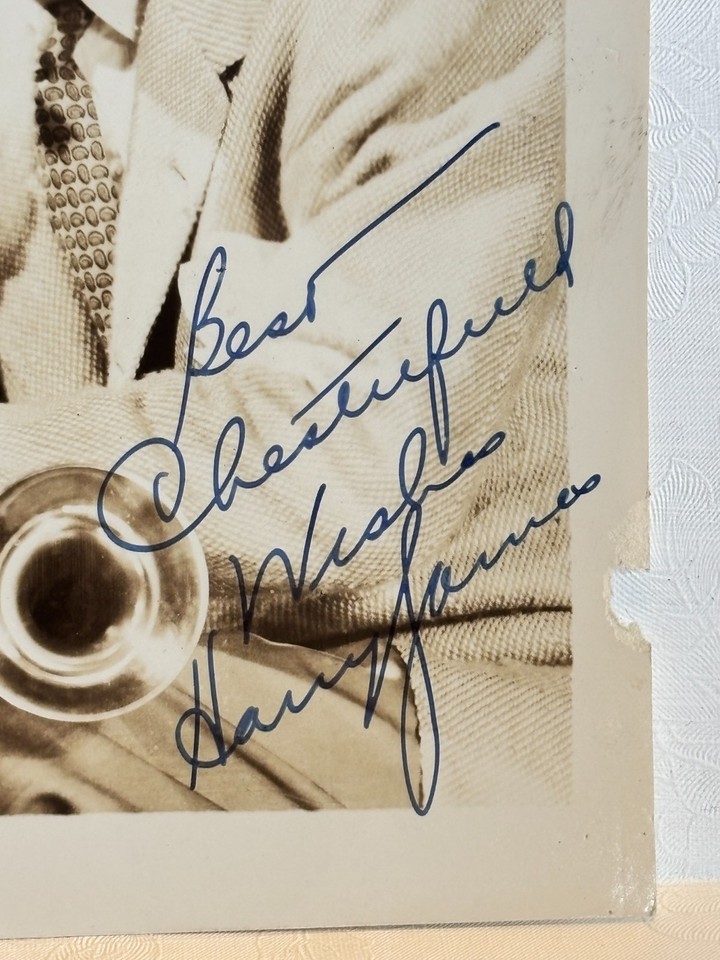 Best
Chesterfield
Wishes
Harry James